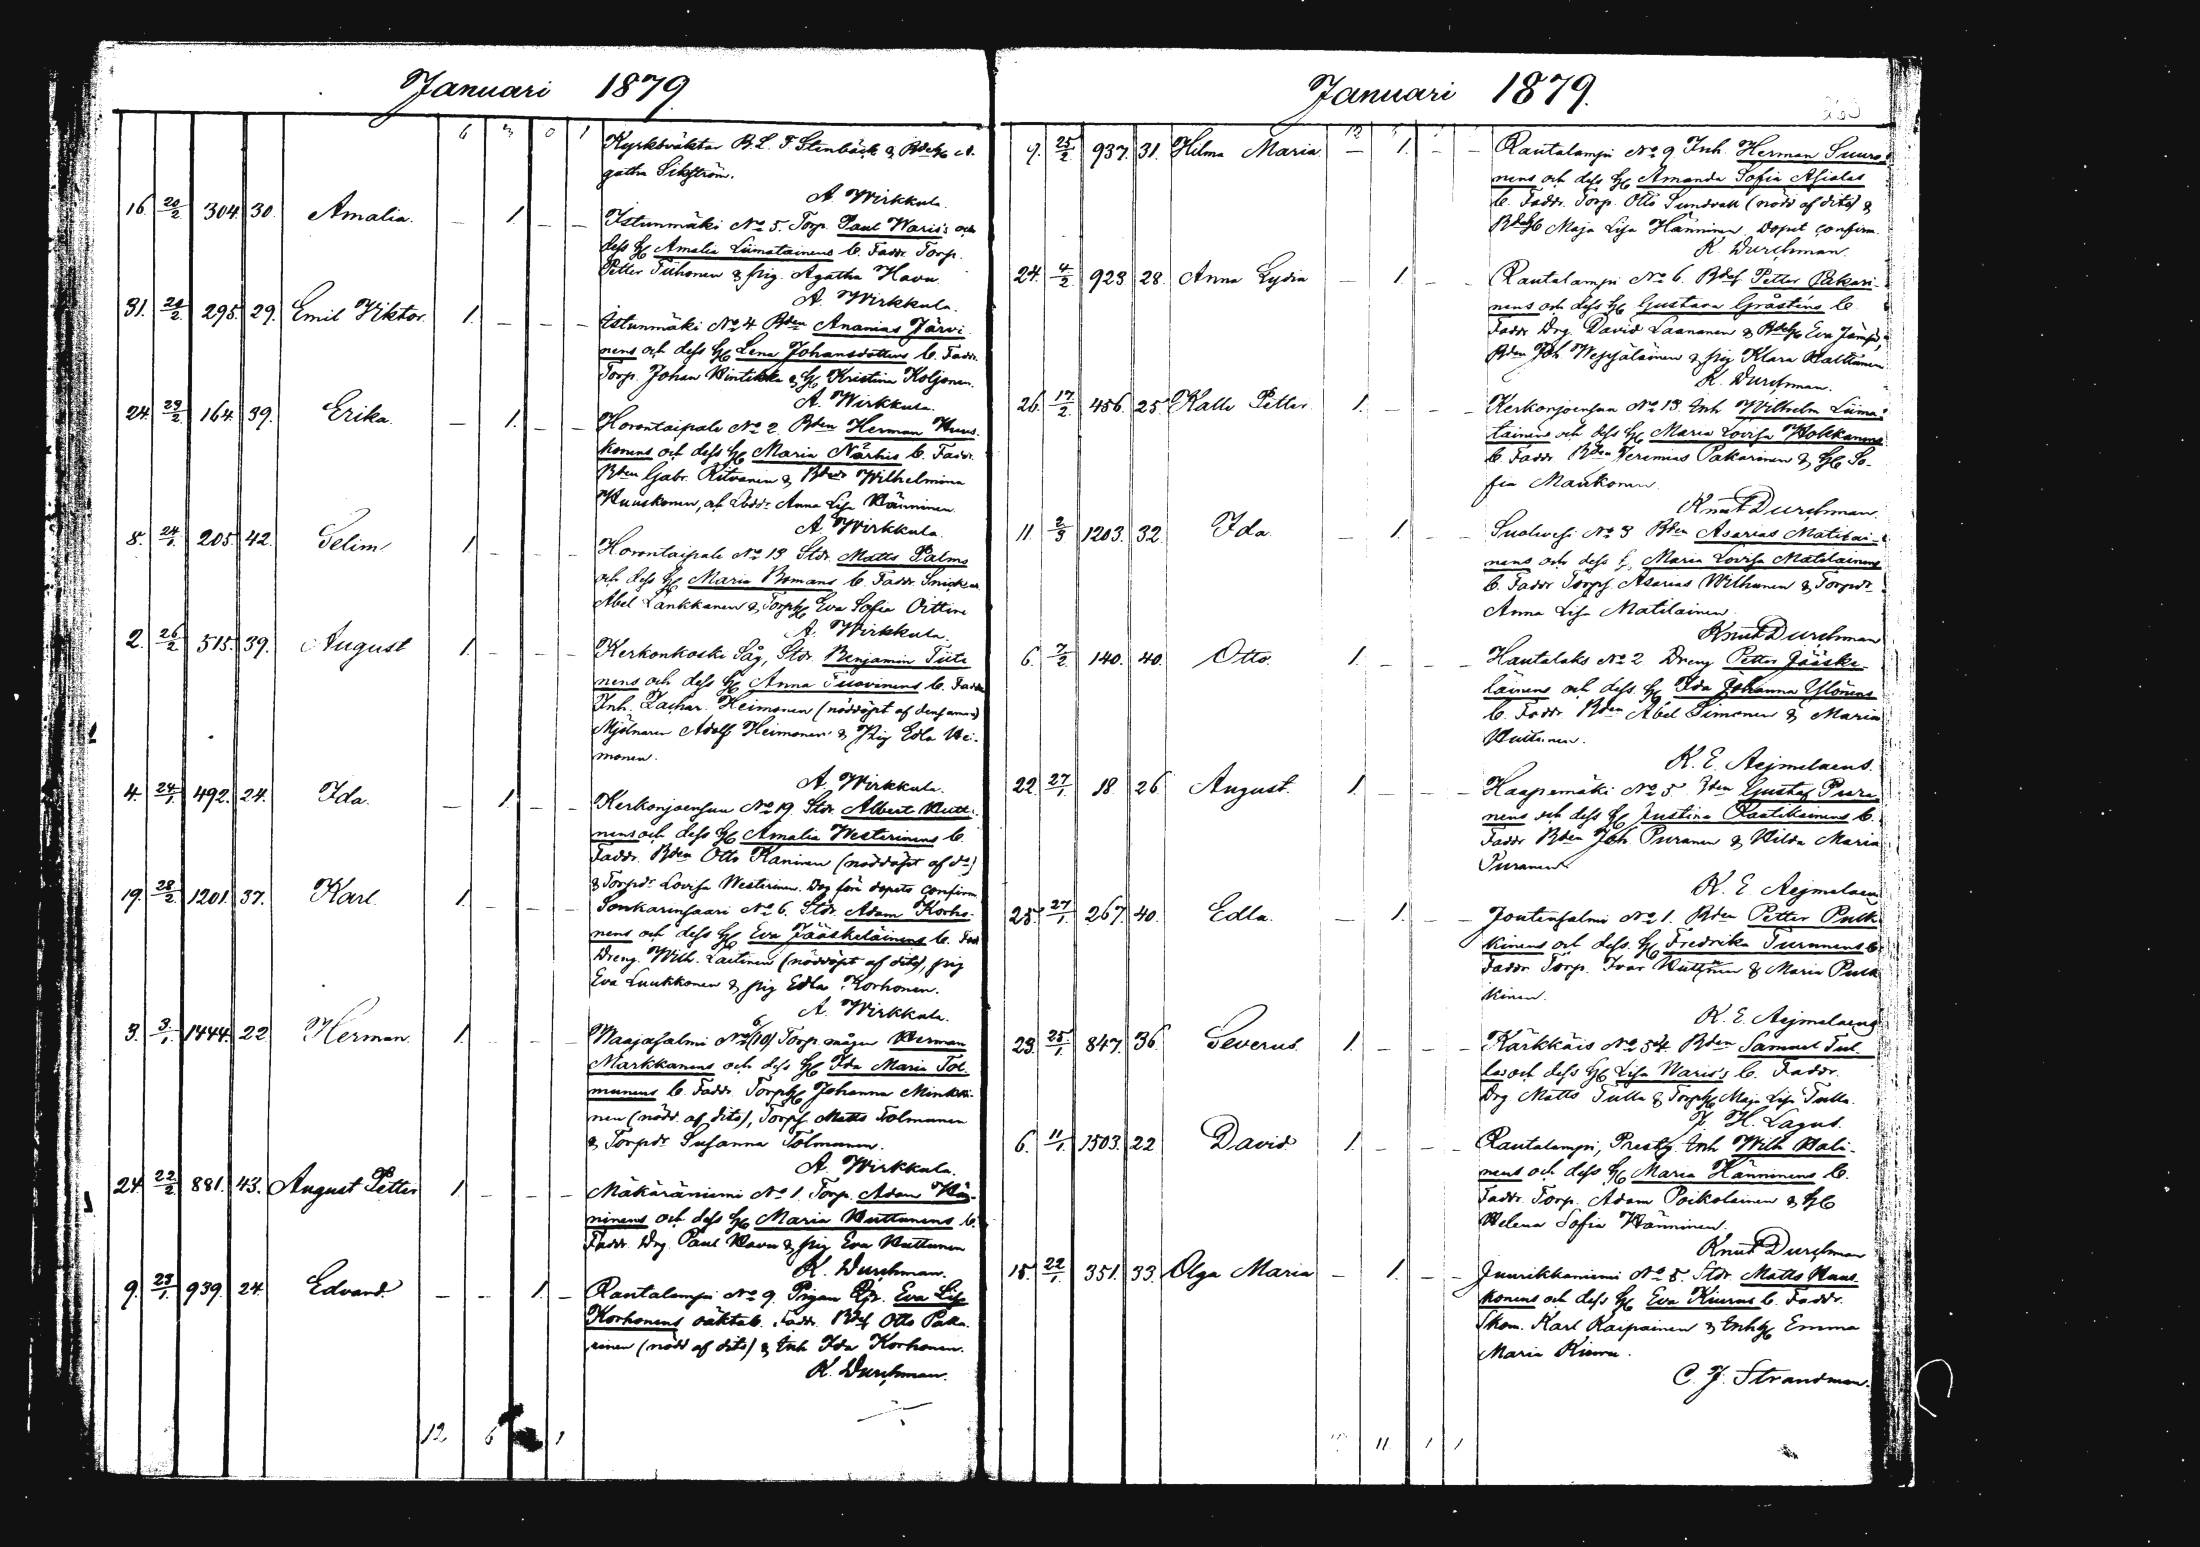 Januari 1879
6 3 0 1
Kyrkoväktar B. L. F Stenbäck &
gatha Sikström.
A. Wirkkula.
16. 20/2 304. 30. Amalia. — 1. — — Istunmäki No 5. Torp. Paul Waris's och
dess H. Amalia Liimatainens b. Faddr. Torp.
Petter Tiihonen & pig. Agatha Havu
A. Wirkkula.
31. 21/2 295. 29. Emil Viktor. 1. — — — Istunmäki No 4 Bden Ananias Järvi
nens och dess H. Lena Johansdotters b. Faddr.
Torp. Johan Hintikka & H. Kristina Koljonen.
A. Wirkkula.
24. 23/2 164. 39. Erika. — 1. — — Horontaipale No 2. Bden Herman Huus
konens och dess H. Maria Närhis b. Faddr.
Bden Gabr. Ritvanen & Bdedr Wilhelmina
Huuskonen, och Anna Lisa Hänninen
A. Wirkkula.
8. 24/1 205. 42. Selim 1. — — — Horontaipale No 13 Stdr. Matts Palms
och dess H. Maria Bomans b. Faddr. Snickar
Abel Lankkanen & Eva Sofia Oittine
A. Wirkkula.
2. 26/2 515. 39. August 1. — — — Kerkonkoski Såg, Stdr. Benjamin Tiiti
nens och dess H. Anna Tuovinens b. Faddr
Inh. Zachar. Heimonen (nöddöpt af densamme)
Mjölnaren Adolf Heimonen & Pig Edla Hei-
monen.
A. Wirkkula.
4. 24/1 492. 24. Ida. — 1. — — Kerkonjoensuu No 19. Stdr. Albert Hutt
nens och dess H. Amalia Westerinens b.
Faddr. Bden Otto Kaninen (nöddöpt af do)
& Torpdr Lovisa Westerinen. Dog före dopets confirm
19. 28/2 1201. 37. Karl. 1. — — — Sonkarinsaari No 6. Stdr. Adam Korho-
nens och dess H. Eva Jääskeläinens b. Fad
Dreng. Wilh. Laitinen (nöddöpt af dito), pig
Eva Luukkonen & pig Edla Korhonen.
A. Wirkkula.
3. 3/1 1444. 22 Herman. 1. — — — Waajasalmi No 6 (10) Torp. mågen Herman
Markkanens och dess H. Ida Maria Tol
munens b. Faddr. Johanna Minkki-
nen (nödd. af dito), Matts Tolmunen
& Torpdr Susanna Tolmunen.
A. Wirkkula.
24. 22/2 881. 43. August Petter 1. — — — Mäkäräniemi No 1. Torp. Adam Hän-
ninens och dess H. Maria Huttunens b.
Faddr. Drg. Paul Havu & pig Eva Huttunen
K. Durchman.
9. 23/1 939. 24. Edvard. — — 1. — Rantalampi No 9. Pigan Eva Lisa
Korhonens oäkta b. Faddr. Otto Paka-
rinen (nödd af dito) & Inh Ida Korhonen.
K. Durchman.
12 6 1
Januari 1879.
9. 25/2 937. 31. Hilma Maria — 1. — — Rautalampi No 9 Inh. Herman Suuro
nens och dess H. Amanda Sofia Asialas
b. Faddr. Torp. Otto Sundvall (nödd af dito) &
Maja Lisa Hänninen. Dopet confirm.
K. Durchman.
24. 4/2 923 28. Anna Lydia — 1. — — Rautalampi No 6. Petter Pakari-
nens och dess H. Gustava Gråsténs b.
Faddr. Drg. David Laananen & Eva
Bden Joh Weijäläinen & pig Klara Halttunen
K. Durchman.
26. 17/2. 456. 25. Kalle Petter 1. — — — Kerkonjoensuu No 13. Inh Wilhelm Liima-
tainens och dess H. Maria Lovisa Hokkanens
b. Faddr. Bden Jeremias Pakarinen & H. So-
fia Maukonen.
Knut Durchman.
11. 2/3 1203. 32. Ida. — 1. — — Suolvesi No 3 Bden Asarias Matilai-
nens och dess H. Maria Lovisa Matilainens
b. Faddr. Asarias Wilhunen & Torpdr
Anna Lisa Matilainen.
Knut Durchman
6. 7/2. 140. 40. Otto. 1. — — — Hautalaks No 2 Dreng Petter Jääske
läinens och dess H. Ida Johanna Ylönens
b. Faddr Bden Abel Simonen & Maria
K. E. Aejmelaeus.
22 27/1. 18 26 August. 1. — — — Haapamäki No 5 Bden Gustaf Pura
nens och dess H. Justina Raatikainens b.
Faddr Bden Joh Puranen & Hilda Maria
Puranen
K. E. Aejmelaeus
25. 27/1. 267. 40. Edla. — 1. — — Joutensalmi No 1. Bden Petter Pulk
kinens och dess H. Fredrika Turunens b
Faddr. Torp. Ivar Huttunen & Maria Pulk
kinen.
K. E. Aejmelaeus
23. 25/1 847. 36. Severus. 1. — — — Kärkkäis No 54 Bden Samuel Tul
las och dess H. Lisa Waris's b. Faddr.
Drg Matts Tulla & Maja Lisa Tulla.
J. H. Lagus.
6. 11/1 1503. 22 David 1. — — — Rautalampi, Prestg. Inh Wilh Hali-
nens och dess H. Maria Hänninens b.
Faddr. Torp. Adam Poikolainen & H.
Helena Sofia Hänninen.
Knut Durchman
15. 22/1. 351. 33. Olga Maria — 1. — — Juurikkaniemi No 5. Stdr. Matts Huus
konens och dess H. Eva Kiurus b. Faddr.
Skom. Karl Kaipainen & Emma
Maria Kiuru.
C. J. Strandman.
11 1 1